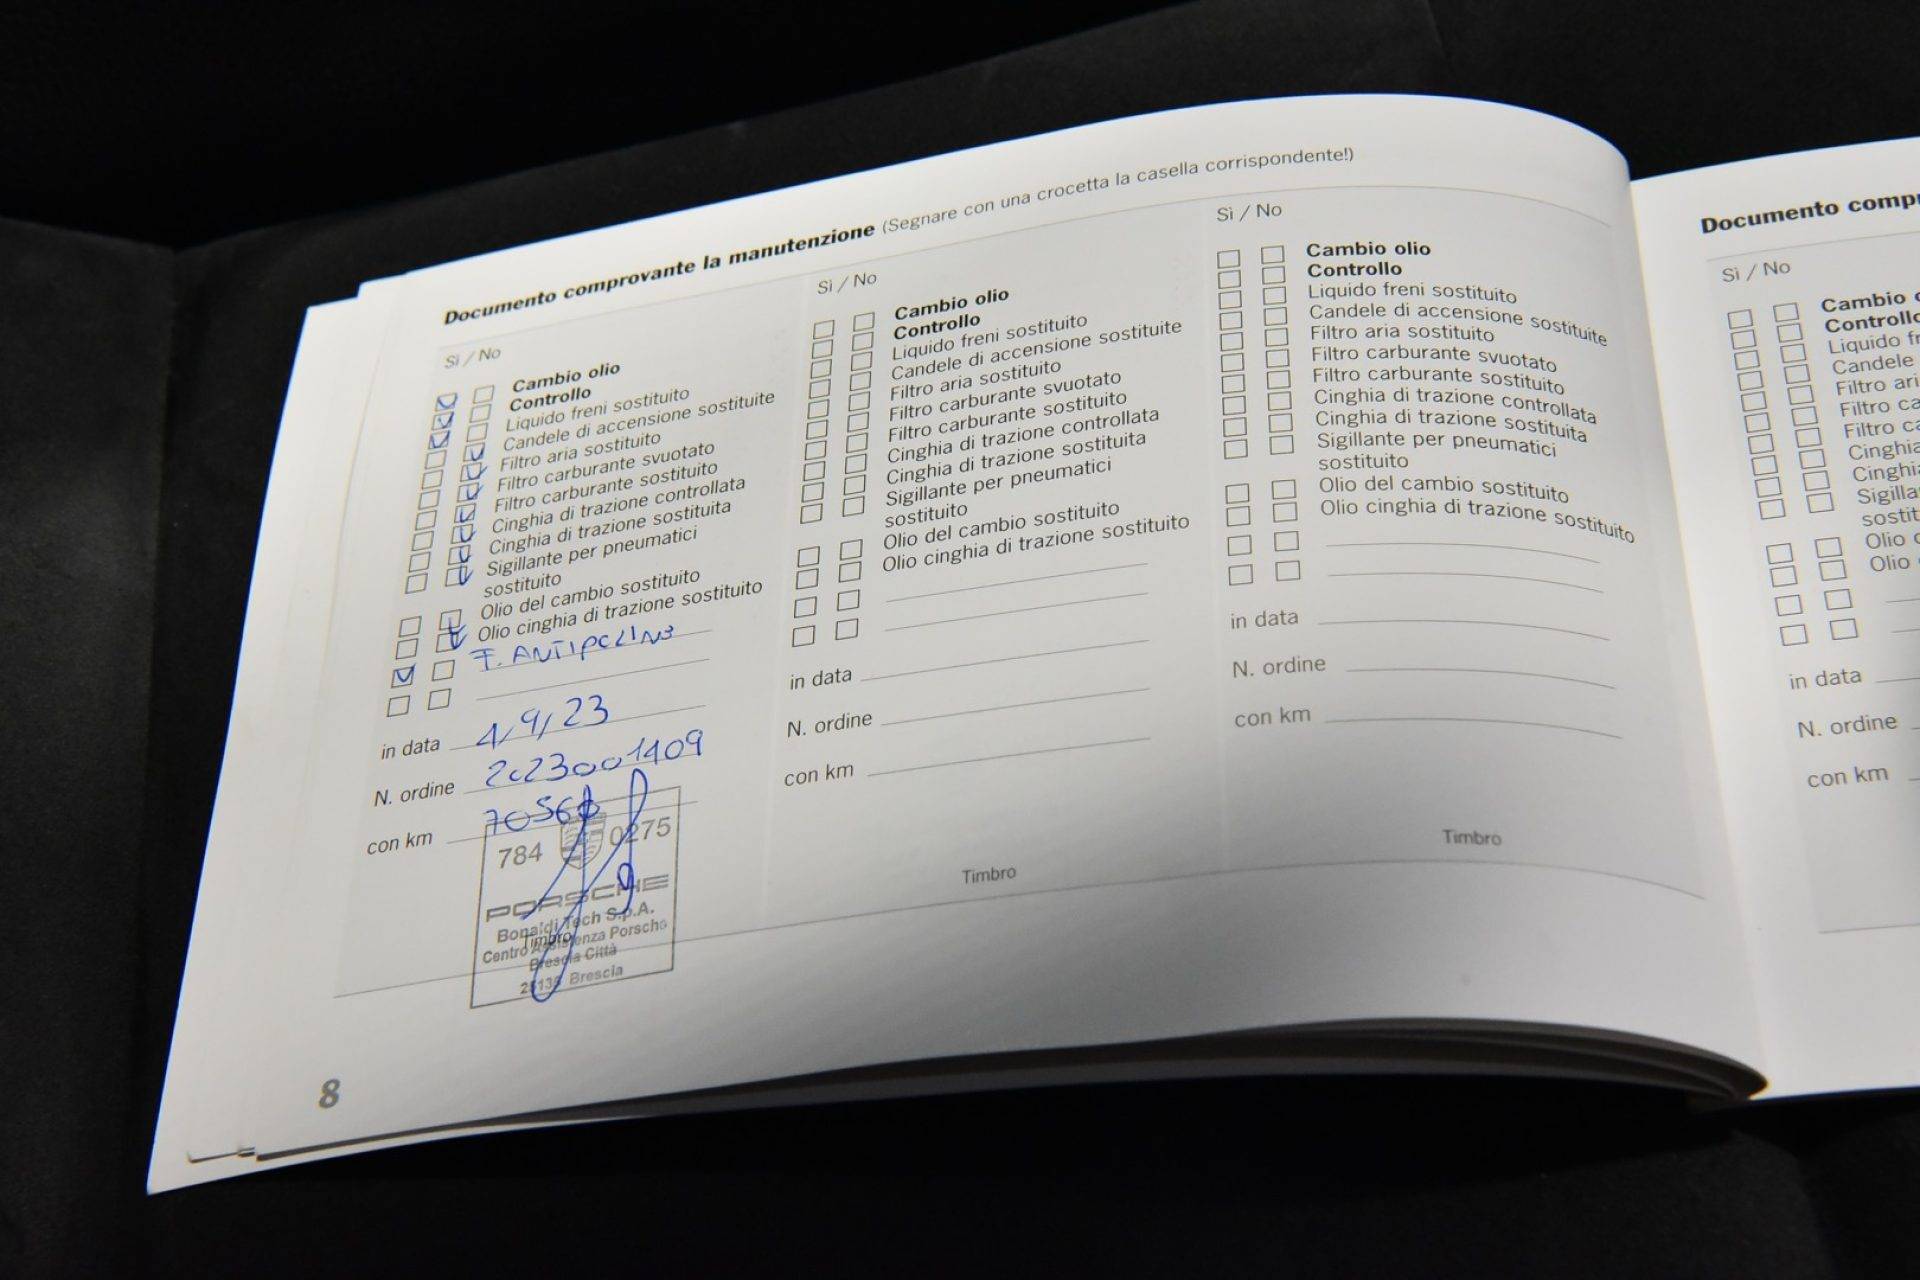 Documento comprovante la manutenzione (Segnare con una crocetta la casella corrispondente!)
Sì / No
Cambio olio
Controllo
Liquido freni sostituito
Candele di accensione sostituite
Filtro aria sostituito
Filtro carburante svuotato
Filtro carburante sostituito
Cinghia di trazione controllata
Cinghia di trazione sostituita
Sigillante per pneumatici
sostituito
Olio del cambio sostituito
Olio cinghia di trazione sostituito
F. ANTIPOLLINE
in data 4/9/23
N. ordine 2023001409
con km
784 0275
PORSCHE
Bonaldi Tech S.p.A.
Timbro
Centro Assistenza Porsche
Brescia Città
Brescia
8
Sì / No
Cambio olio
Controllo
Liquido freni sostituito
Candele di accensione sostituite
Filtro aria sostituito
Filtro carburante svuotato
Filtro carburante sostituito
Cinghia di trazione controllata
Cinghia di trazione sostituita
Sigillante per pneumatici
sostituito
Olio del cambio sostituito
Olio cinghia di trazione sostituito
in data
N. ordine
con km
Timbro
Sì / No
Cambio olio
Controllo
Liquido freni sostituito
Candele di accensione sostituite
Filtro aria sostituito
Filtro carburante svuotato
Filtro carburante sostituito
Cinghia di trazione controllata
Cinghia di trazione sostituita
Sigillante per pneumatici
sostituito
Olio del cambio sostituito
Olio cinghia di trazione sostituito
in data
N. ordine
con km
Timbro
Documento comp
Sì / No
Cambio
Controllo
Liquido fr
Candele
Filtro ari
Filtro ca
Filtro ca
Cinghia
Cinghi
Sigilla
sostit
Olio
Olio
in data
N. ordine
con km